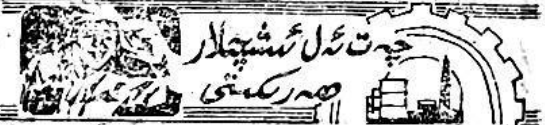 چەت ئەل ئىشچىلار
ھەرىكىتى